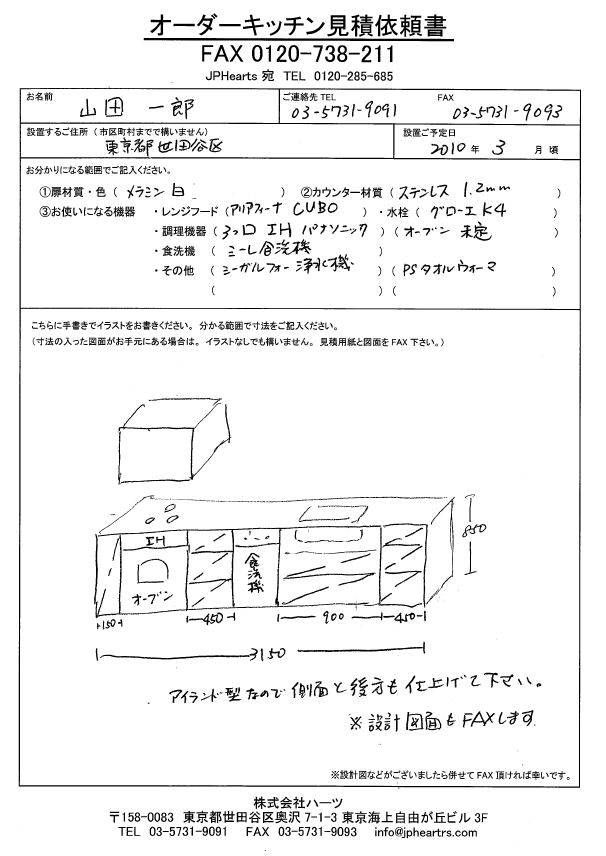 オーダーキッチン見積依頼書
FAX 0120-738-211
JPHearts 宛 TEL 0120-285-685
お名前 山田 一郎 ご連絡先 TEL 03-5731-9091 FAX 03-5731-9093
設置するご住所（市区町村までで構いません） 東京都世田谷区 設置ご予定日 2010 年 3 月 頃
お分かりになる範囲でご記入ください。
①扉材質・色（メラミン白）②カウンター材質（ステンレス 1.2mm）
③お使いになる機器 ・レンジフード（アリアフィーナ CUBO）・水栓（グローエK4）
・調理機器（3ッ口 IH パナソニック）（オーブン 未定）
・食洗機（ミーレ食洗機）
・その他（シーガルフォー浄水機）（PSタオルウォーマ）
（ ）（ ）
こちらに手書きでイラストをお書きください。分かる範囲で寸法をご記入ください。
（寸法の入った図面がお手元にある場合は。イラストなしでも構いません。見積用紙と図面をFAX下さい。）
850
IH
オーブン
食洗機
150 450 900 450
3150
アイランド型なので側面と後方も仕上げて下さい。
※設計図面もFAXします
※設計図などがございましたら併せてFAX頂ければ幸いです。
株式会社ハーツ
〒158-0083 東京都世田谷区奥沢 7-1-3 東京海上自由が丘ビル 3F
TEL 03-5731-9091 FAX 03-5731-9093 info@jpheartrs.com